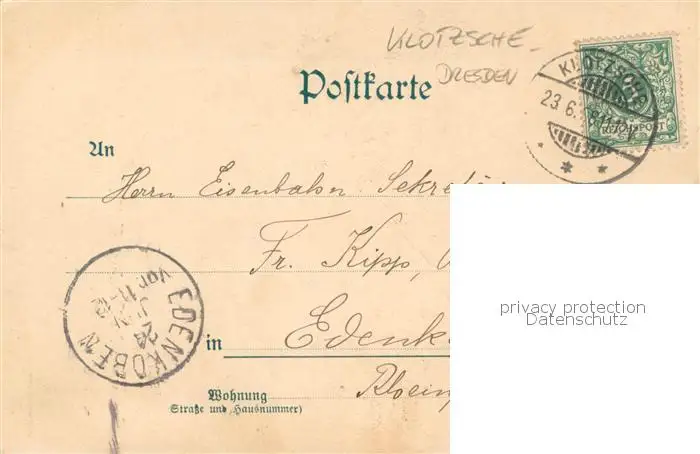 KLOTZSCHE-
DRESDEN
Postkarte
KLOTZSCHE
23.6.
REICHSPOST
An
Herrn Eisenbahn Sekre
Fr. Kipp,
EDENKOBEN
24
JUN
Vor. 11-12
in Edenk
Wohnung
(Straße und Hausnummer)
privacy protection
Datenschutz